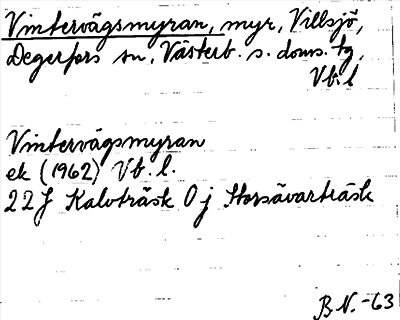 Vintervägsmyran, myr, Villsjö,
Degerfors sn, Västerb. s. doms. tg,
Vb. l
Vintervägsmyran
ek (1962) Vb. l.
22 J Kalvträsk 0 j Storsävarträsk
B.N. -63